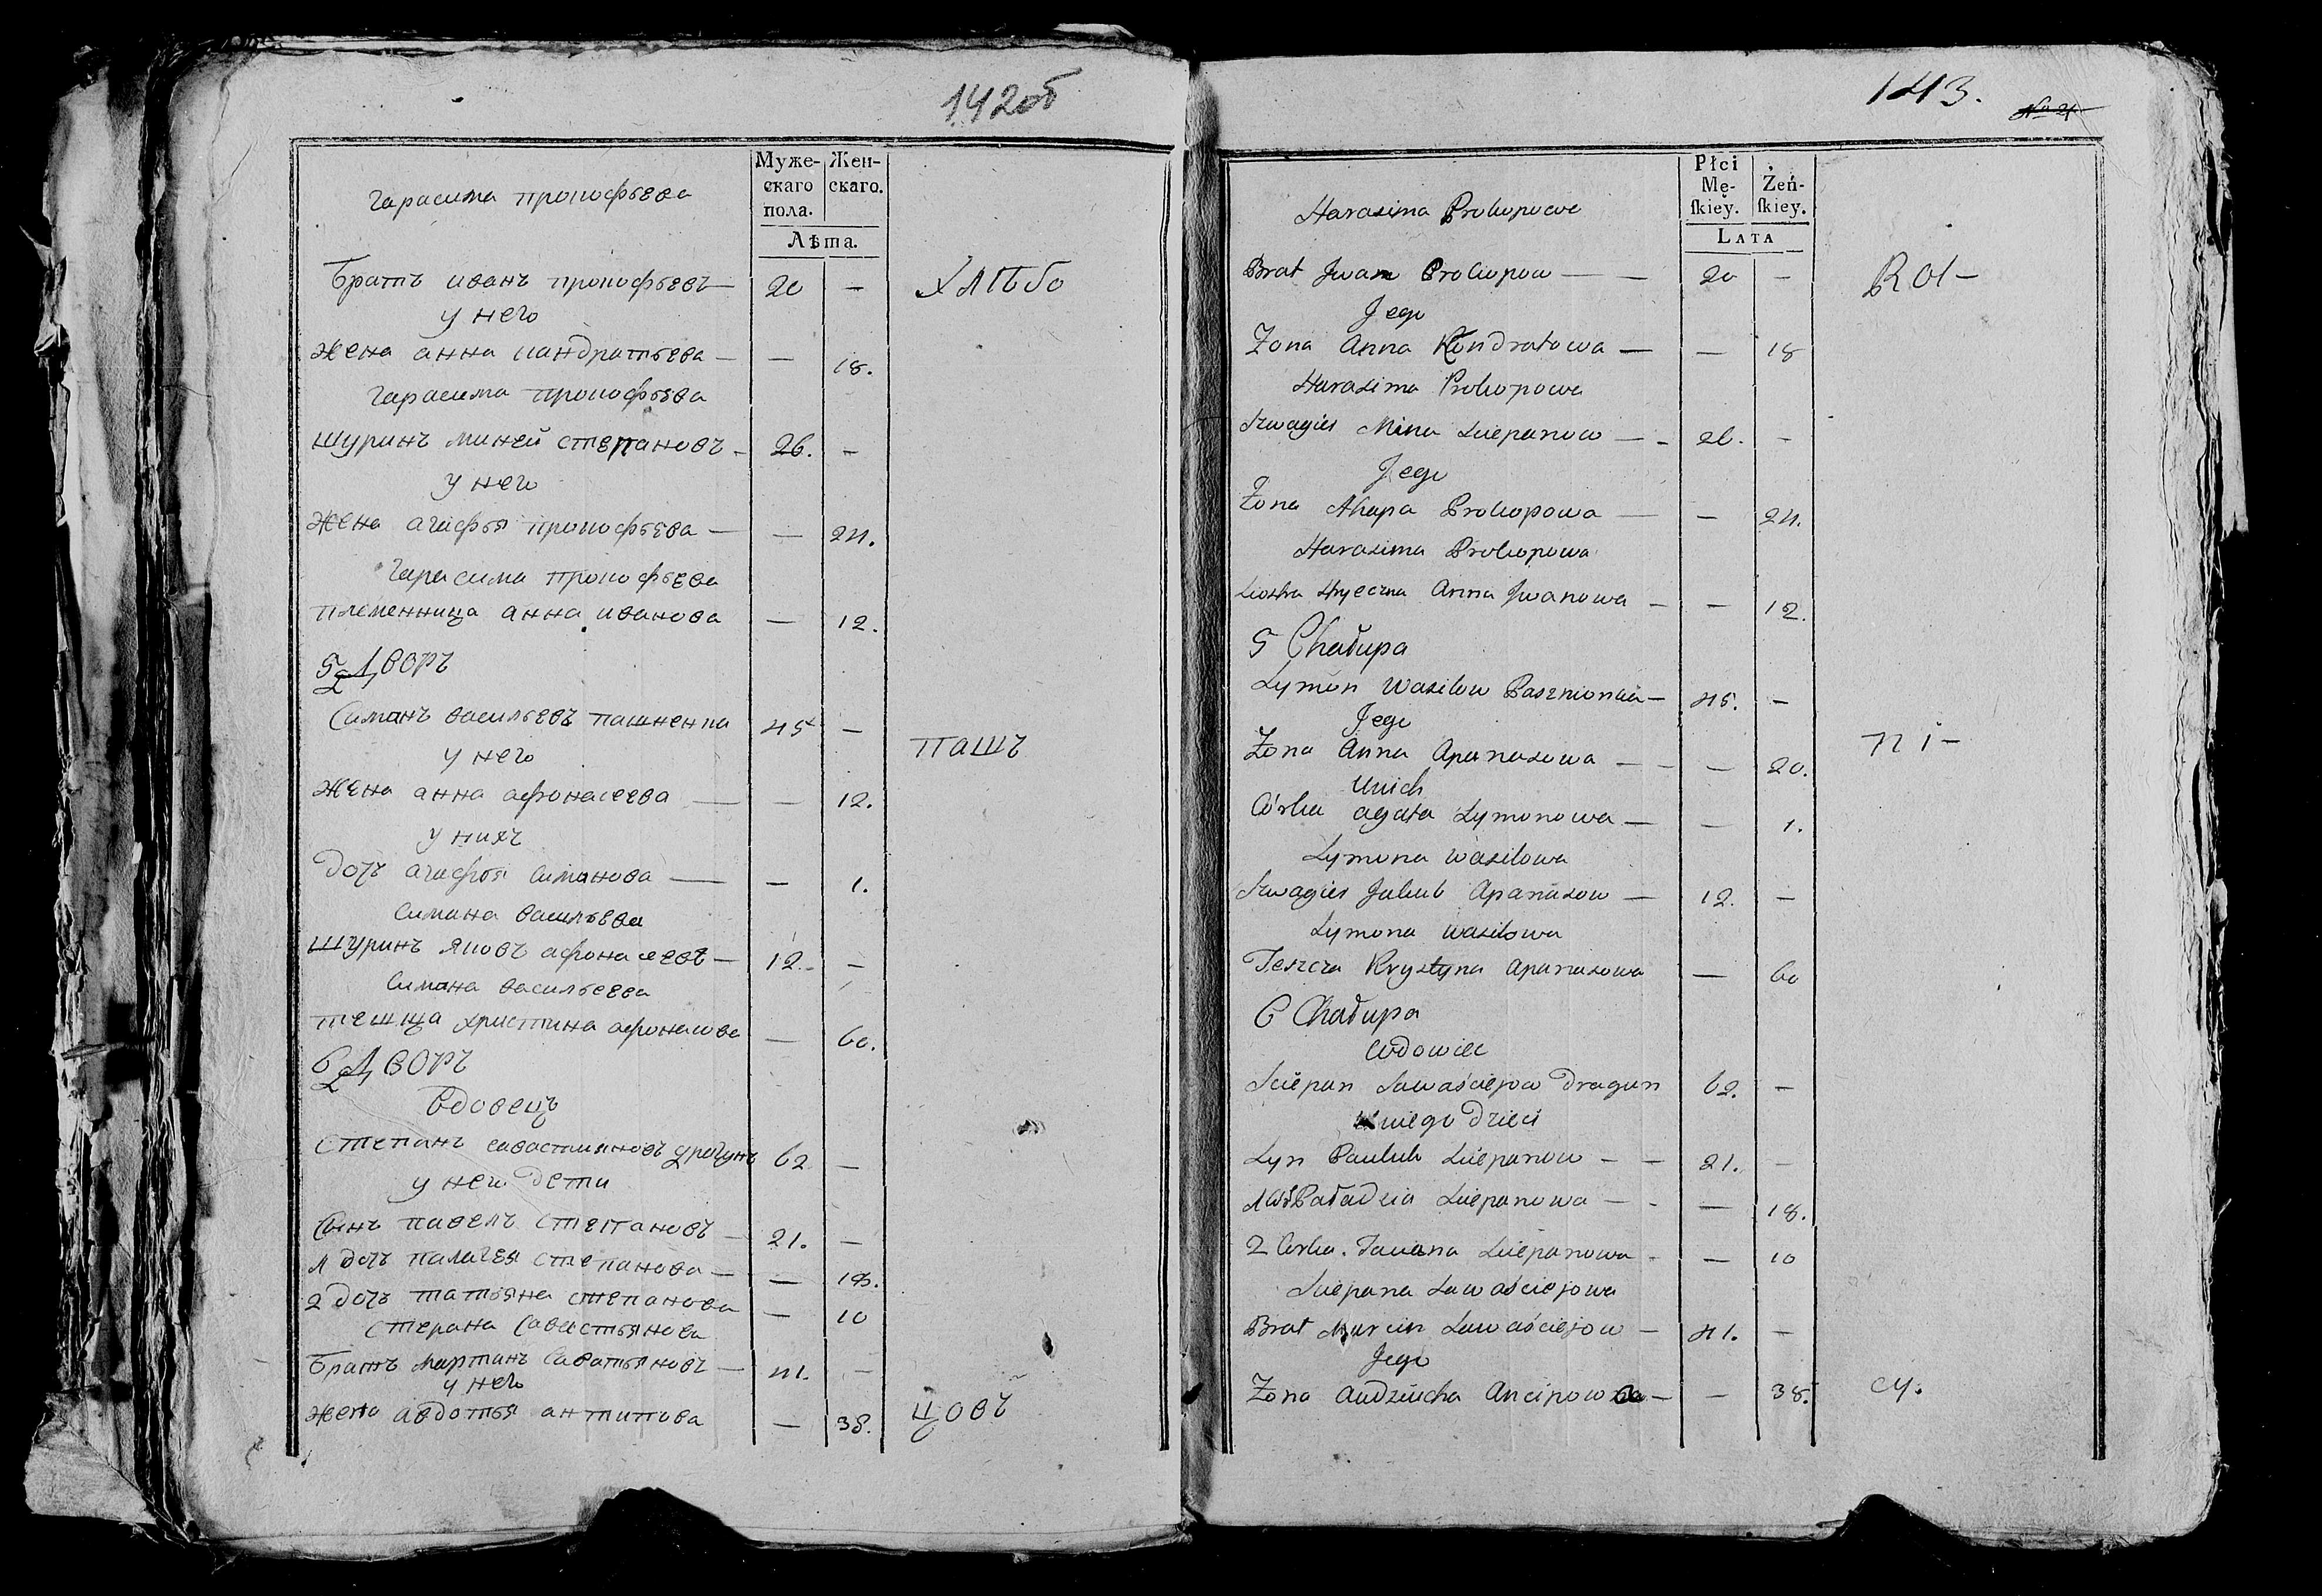 142об
Муже-
скаго
пола.
Жен-
скаго.
Лѣта.
Гарасима прокофьева
Братъ иванъ прокофьевъ — 20 —
у него
жена анна кандратьева — — 18.
Гарасима прокофьева
шуринъ миней степановъ — 26. —
у него
жена агафья прокофьева — — 24.
Гарасима прокофьева
племенница анна иванова — 12.
5 Дворъ
Симанъ васильевъ пашненка 45 —
у него
жена анна афонасеева — — 12.
у нихъ
дочь агафья симанова — — 1.
симана васильева
шуринъ яковъ афонасеевъ — 12. —
симана васильева
тешща христина афонасова — 60.
6 Дворъ
вдовецъ
степанъ савастиановъ драгунъ 62 —
у него дети
сынъ павелъ степановъ — 21. —
1 дочь палагея степанова — — 18.
2 дочь татьяна степанова — 10
степана савастьянова
братъ мартинъ саватьяновъ — 41. —
у него
жена авдотья антипова — 38.
хлѣбо
пашъ
цовъ
143.
№ 21
Płci
Mę-
skiey.
Żeń-
skiey.
LATA
Harasima Prokopowa
Brat Jwan Prokopow — — 20 —
Jego
Żona Anna Kondratowa — — 18
Harasima Prokopowa
Szwagier Mina Sciepanow — — 26. —
Jego
Żona Ahapa Prokopowa — — 24.
Harasima Prokopowa
Siostra Stryieczna Anna Jwanowa — — 12.
5 Chałupa
Symon Wasilow Pasznionka — 45. —
Jego
Żona Anna Apanasowa — — — 20.
Unich
Córka agata Symonowa — — 1.
Symona Wasilowa
Szwagier Jakub Apanasow — 12. —
Symona Wasilowa
Teszcza Krystyna Apanasowa — 60
6 Chałupa
wdowiec
Sciepan Sawaściejow Dragun 62. —
Uniego Dzieci
Syn Pauluk Sciepanow — — 21. —
1 Cór Paładzia Sciepanowa — - — 18.
2 Córka. Taciana Sciepanowa - — 10
Sciepana Sawaściejowa
Brat Marcin Sawaściejow — 41. —
Jego
Żona Audziucha Ancipowa — — 38.
Rol-
ni-
cy.